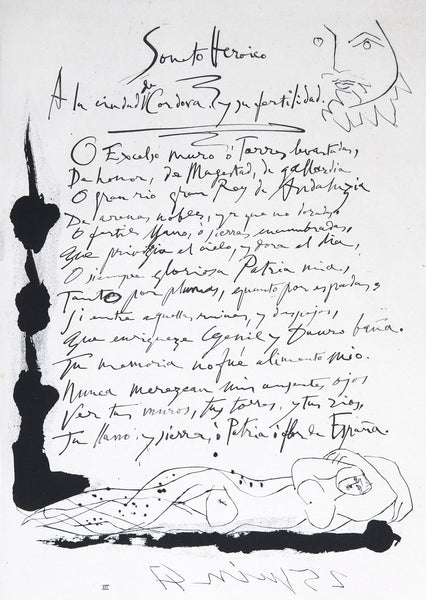 Soneto Heroico
A la ciudad de Cordova y su fertilidad.
O Excelso muro ô Torres levantadas,
De honor, de Magestad, de gallardia
O gran rio gran Rey de Andaluzia
De arenas nobles, ya que no doradas.
O fertil llano, ô sierras encumbradas,
Que privilegia el cielo, y dora el dia,
O siempre gloriosa Patria mia,
Tanto por plumas, quanto por espadas,
Si entre aquellas ruinas, y despojos,
Que enriqueze Genil y Dauro baña.
Tu memoria no fué alimento mio.
Nunca merezcan mis ausentes ojos
Ver tus muros, tus torres, y tus rios,
Tu llano y sierra, ô Patria ô flor de España.
25 juin 47
III